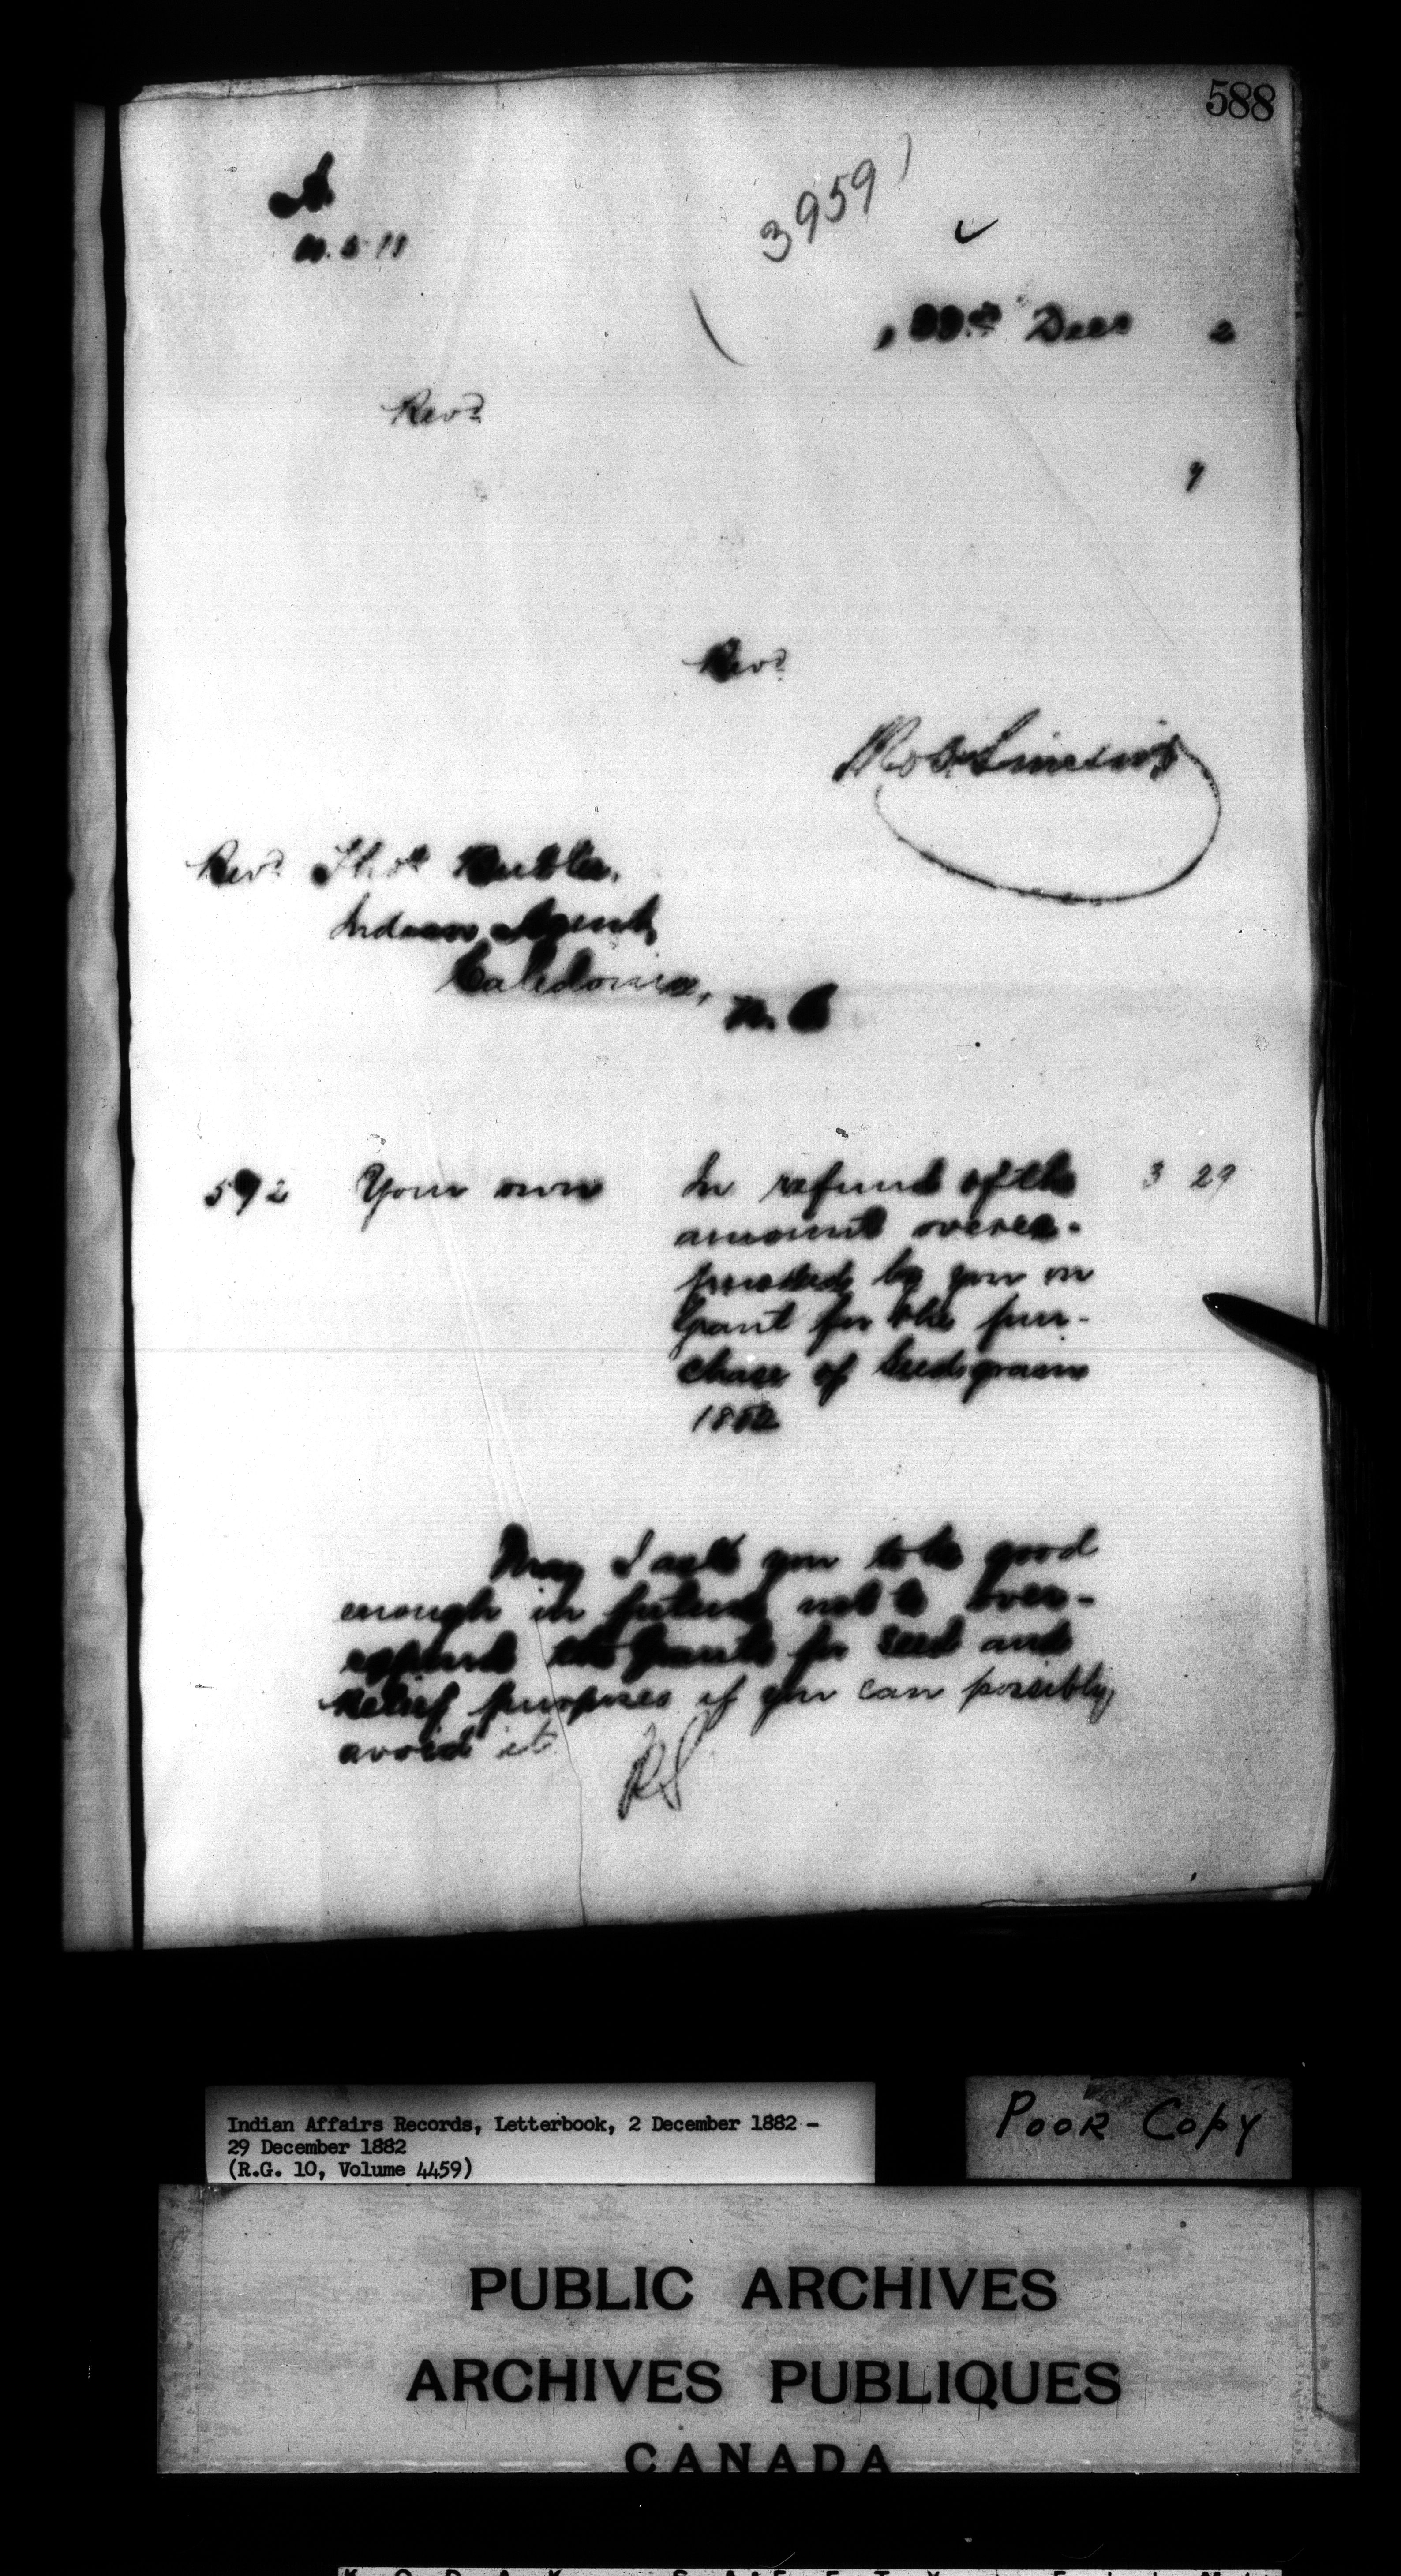 588
39591
Dec 2
Revd
Revd
Robt Sinclair
Revd Thos Butler,
Indian Agent,
Caledonia,
N. S
592 Your own In refund of the 3 29
amount overex-
pended by you on
Grant for the pur-
chase of Seed grain
1882
May I ask you to be good
enough in future not to over-
expend the Grants for seed and
Relief purposes if you can possibly
avoid it
RS
Indian Affairs Records, Letterbook, 2 December 1882 -
29 December 1882
(R.G. 10, Volume 4459)
POOR COPY
PUBLIC ARCHIVES
ARCHIVES PUBLIQUES
CANADA